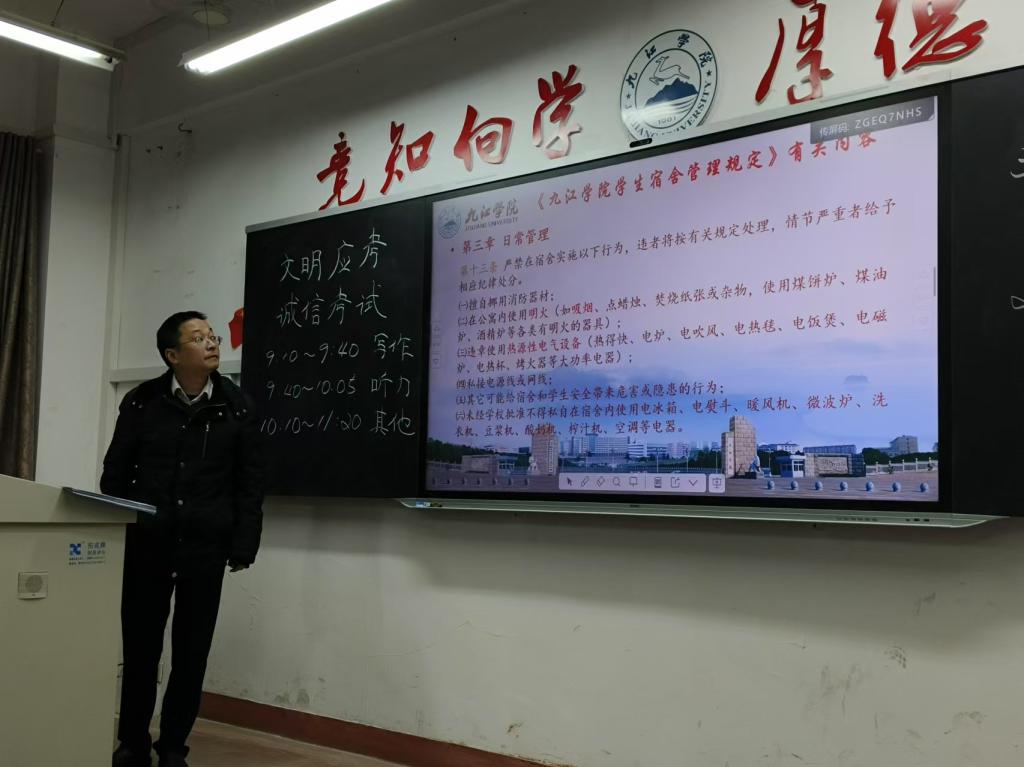 竟知向学
九江学院
1901
JIUJIANG UNIVERSITY
厚德
文明应考
诚信考试
9:10~9:40 写作
9:40~10:05 听力
10:10~11:20 其他
传屏码: ZGEQ7NHS
九江学院
JIUJIANG UNIVERSITY
《九江学院学生宿舍管理规定》有关内容
• 第三章 日常管理
第十三条 严禁在宿舍实施以下行为，违者将按有关规定处理，情节严重者给予
相应纪律处分。
㈠擅自挪用消防器材；
㈡在公寓内使用明火（如吸烟、点蜡烛、焚烧纸张或杂物，使用煤饼炉、煤油
炉、酒精炉等各类有明火的器具）；
㈢违章使用热源性电气设备（热得快、电炉、电吹风、电热毯、电饭煲、电磁
炉、电热杯、烤火器等大功率电器）；
㈣私接电源线或网线；
㈤其它可能给宿舍和学生安全带来危害或隐患的行为；
㈥未经学校批准不得私自在宿舍内使用电冰箱、电熨斗、暖风机、微波炉、洗
衣机、豆浆机、酸奶机、榨汁机、空调等电器。